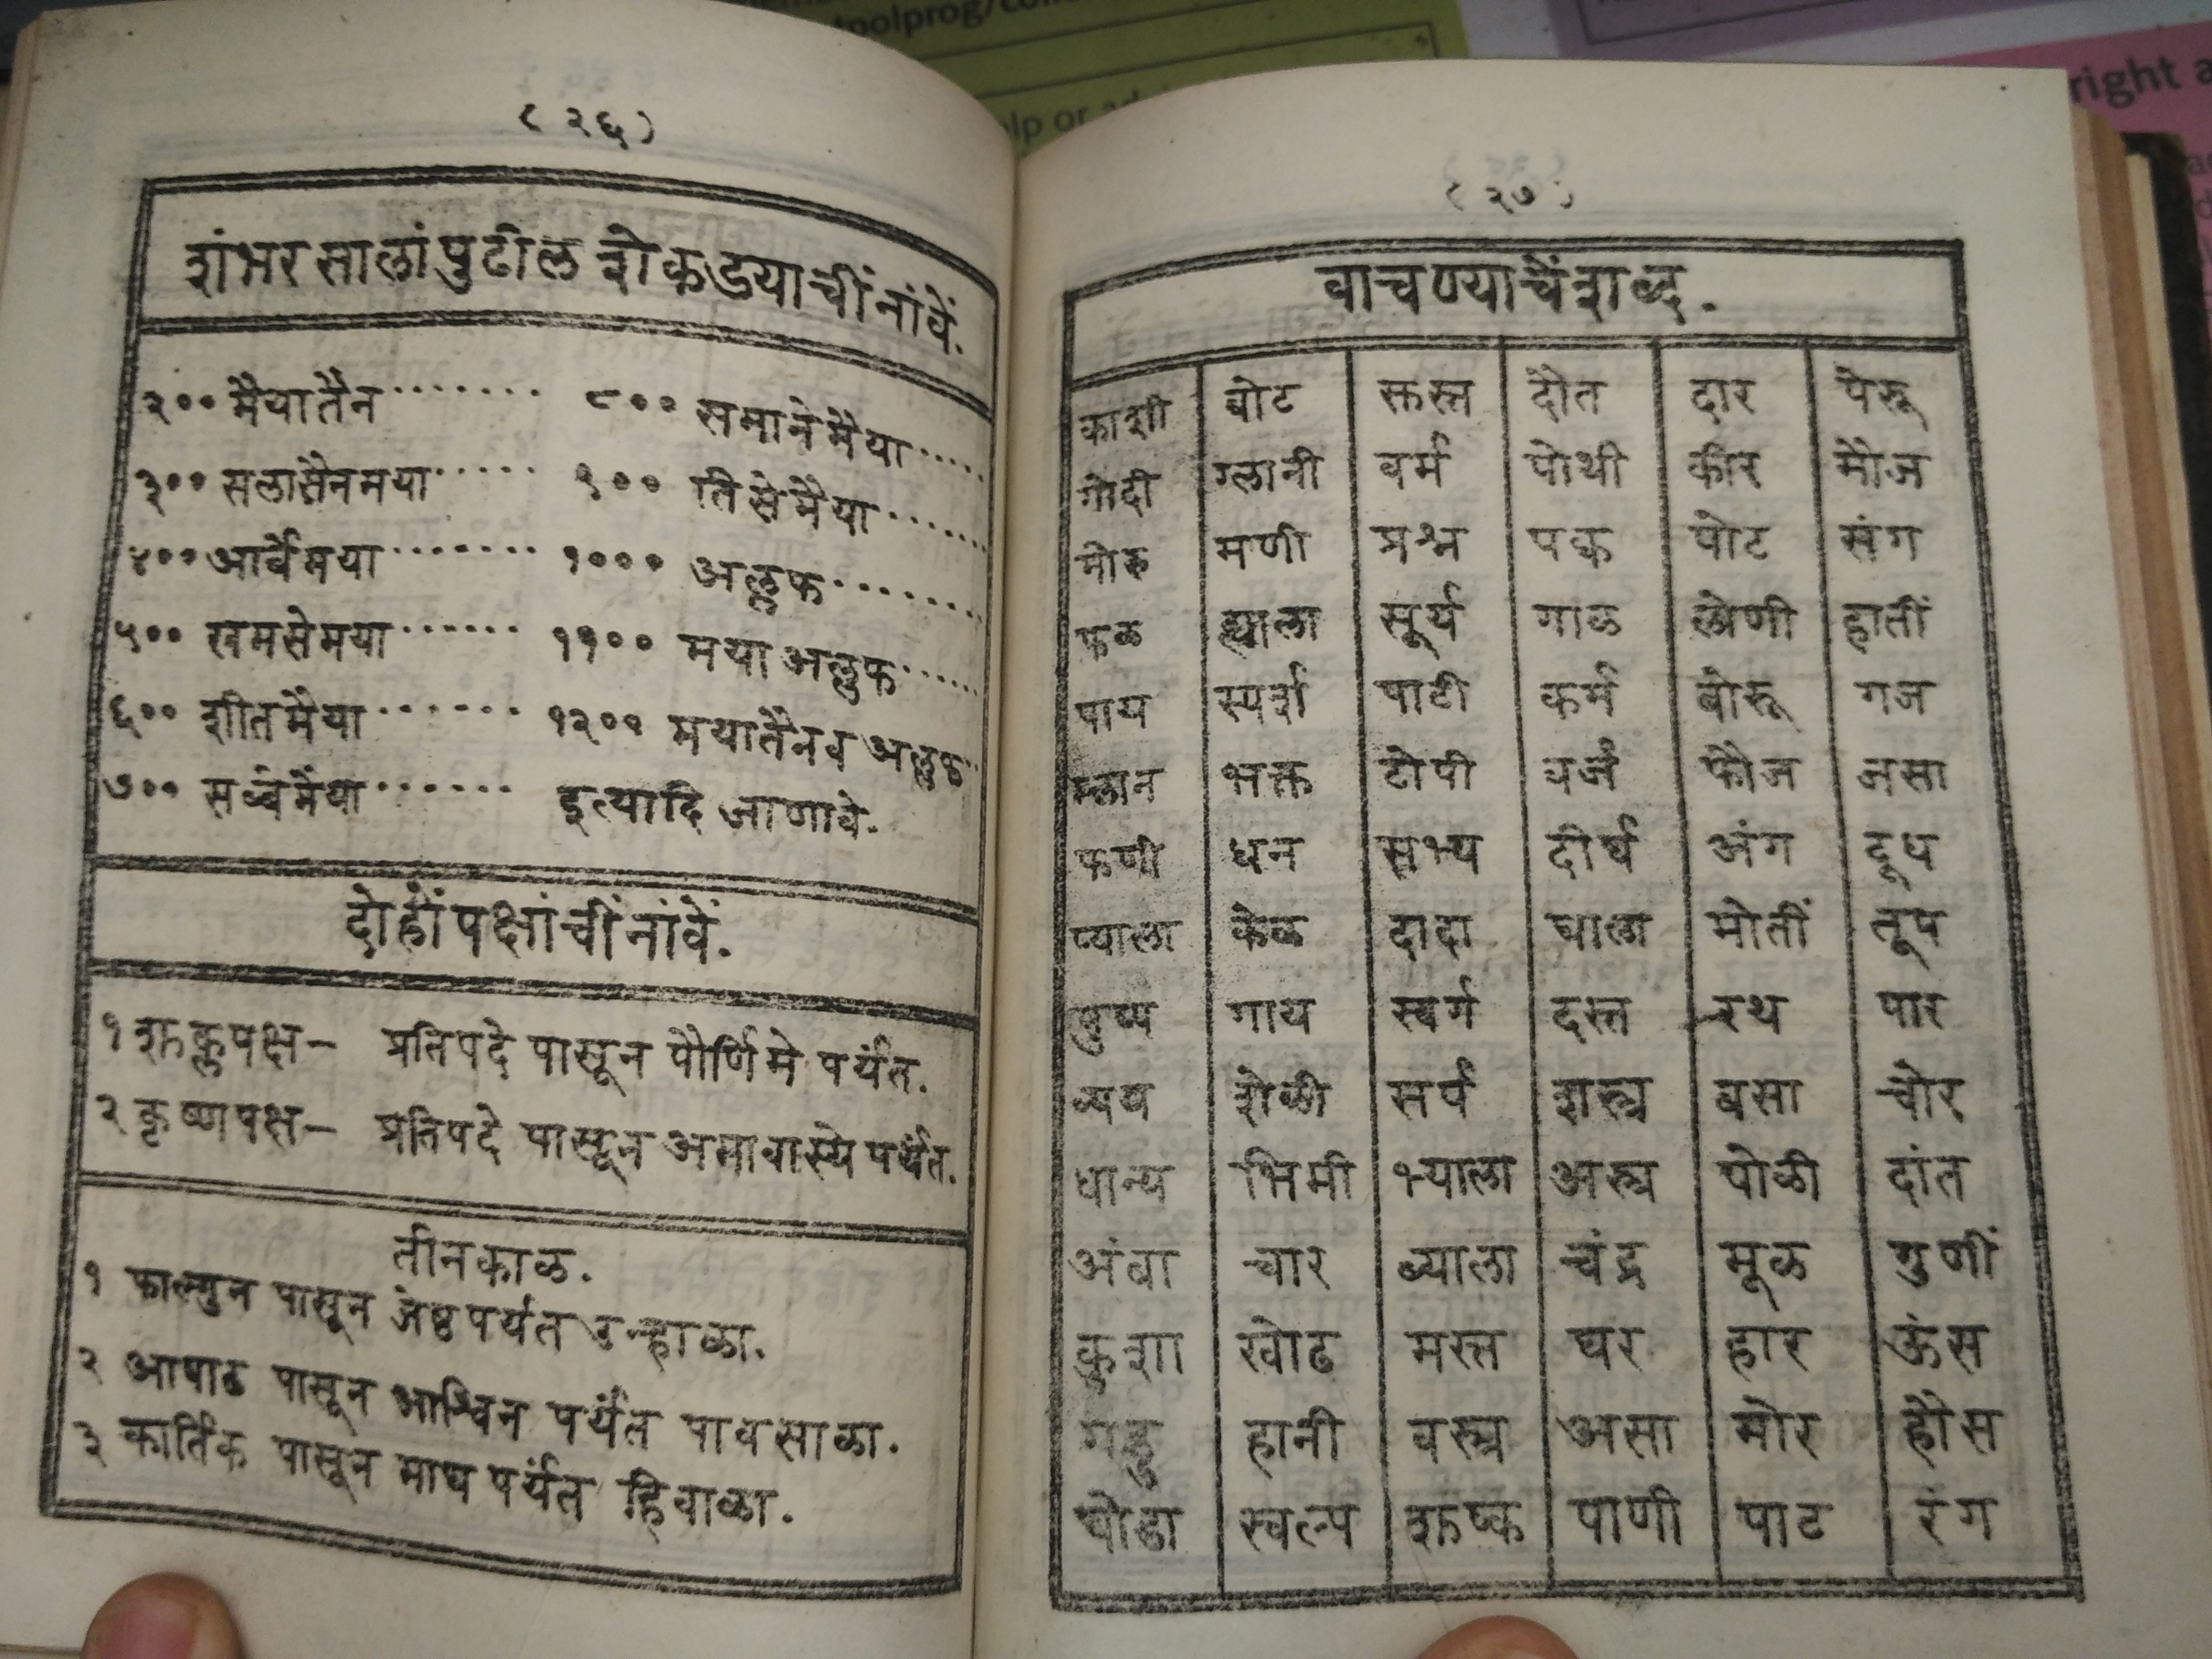 polprog/con
lp or ad
right a
( २६ )
शंभर सालां पुढील शेकडयाचीं नांवें.
२०० मैयातैन ....... ८०० समानेमैया .....
३०० सलासैनमया ..... ९०० तिसेमैया ......
४०० आर्बेमया ........ १००० अल्लफ ........
५०० खमसेमया ...... ११०० मया अलुफ ......
६०० शीतमैया ....... १२०० मयातैनव अल्लफ
७०० सब्बेमैया ...... इत्यादि जाणावे.
दोहों पक्षांचीं नांवें.
१ शुक्लपक्ष— प्रतिपदे पासून पौर्णिमे पर्यंत.
२ कृष्णपक्ष— प्रतिपदे पासून अमावास्ये पर्यंत.
तीनकाळ.
१ फाल्गुन पासून जेष्ठ पर्यंत उन्हाळा.
२ आषाढ पासून आश्विन पर्यंत पावसाळा.
३ कार्तिक पासून माघ पर्यंत हिवाळा.
( २७ )
वाचण्याचें शब्द.
काशी बोट क्तस्त दौत दार पेरू
गोदी ग्लानी वर्म पोथी कीर मौज
मोरु मणी प्रश्न पक्व पोट संग
फळ ह्याला सूर्य गाळ लोणी हातीं
पाय स्पर्श पाटी कर्म बोरू गज
म्लान भक्त टोपी वर्ज फौज जसा
फणी धन सभ्य दीर्घ अंग दूध
प्याला केळ दादा घाला मोतीं तूप
पुष्प गाय स्वर्ग दस्त रथ पार
व्यय शेळी सर्प शस्त्र बसा चोर
धान्य भिमी भ्याला अस्त्र पोळी दांत
अंबा चार ब्याला चंद्र मूळ गुणीं
कुशा खोड मस्त घर हार ऊंस
गडु हानी वस्त्र असा मोर हौस
घोडा स्वल्प शुष्क पाणी पाट रंग